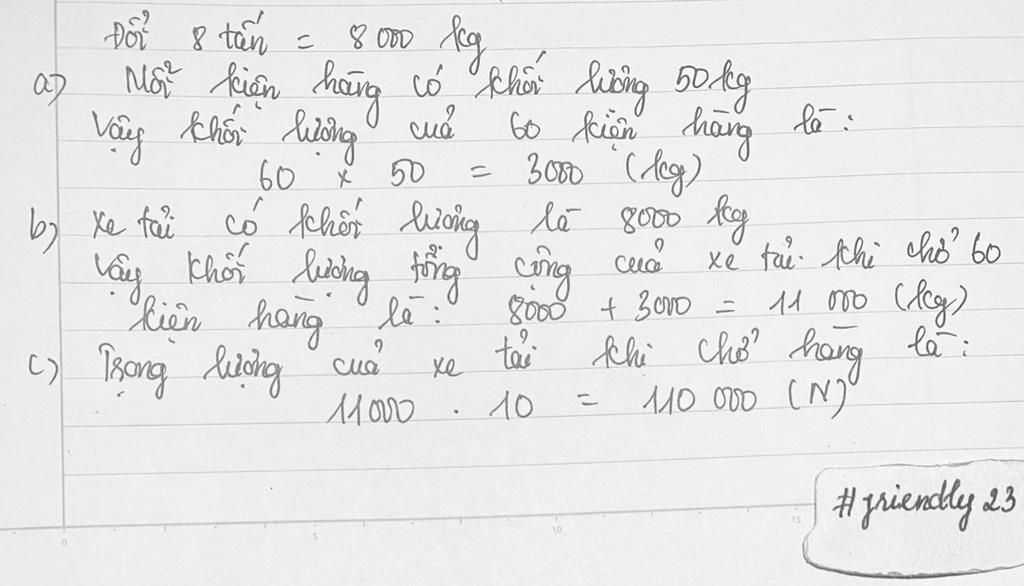 Đổi 8 tấn = 8 000 kg
a) Mỗi kiện hàng có khối lượng 50 kg
Vậy khối lượng của 60 kiện hàng là :
60 x 50 = 3000 (kg)
b) Xe tải có khối lượng là 8000 kg
Vậy khối lượng tổng cộng của xe tải khi chở 60
kiện hàng là : 8000 + 3000 = 11 000 (kg)
c) Trọng lượng của xe tải khi chở hàng là :
11000 . 10 = 110 000 (N)
#friendly 23
0 5 10 15